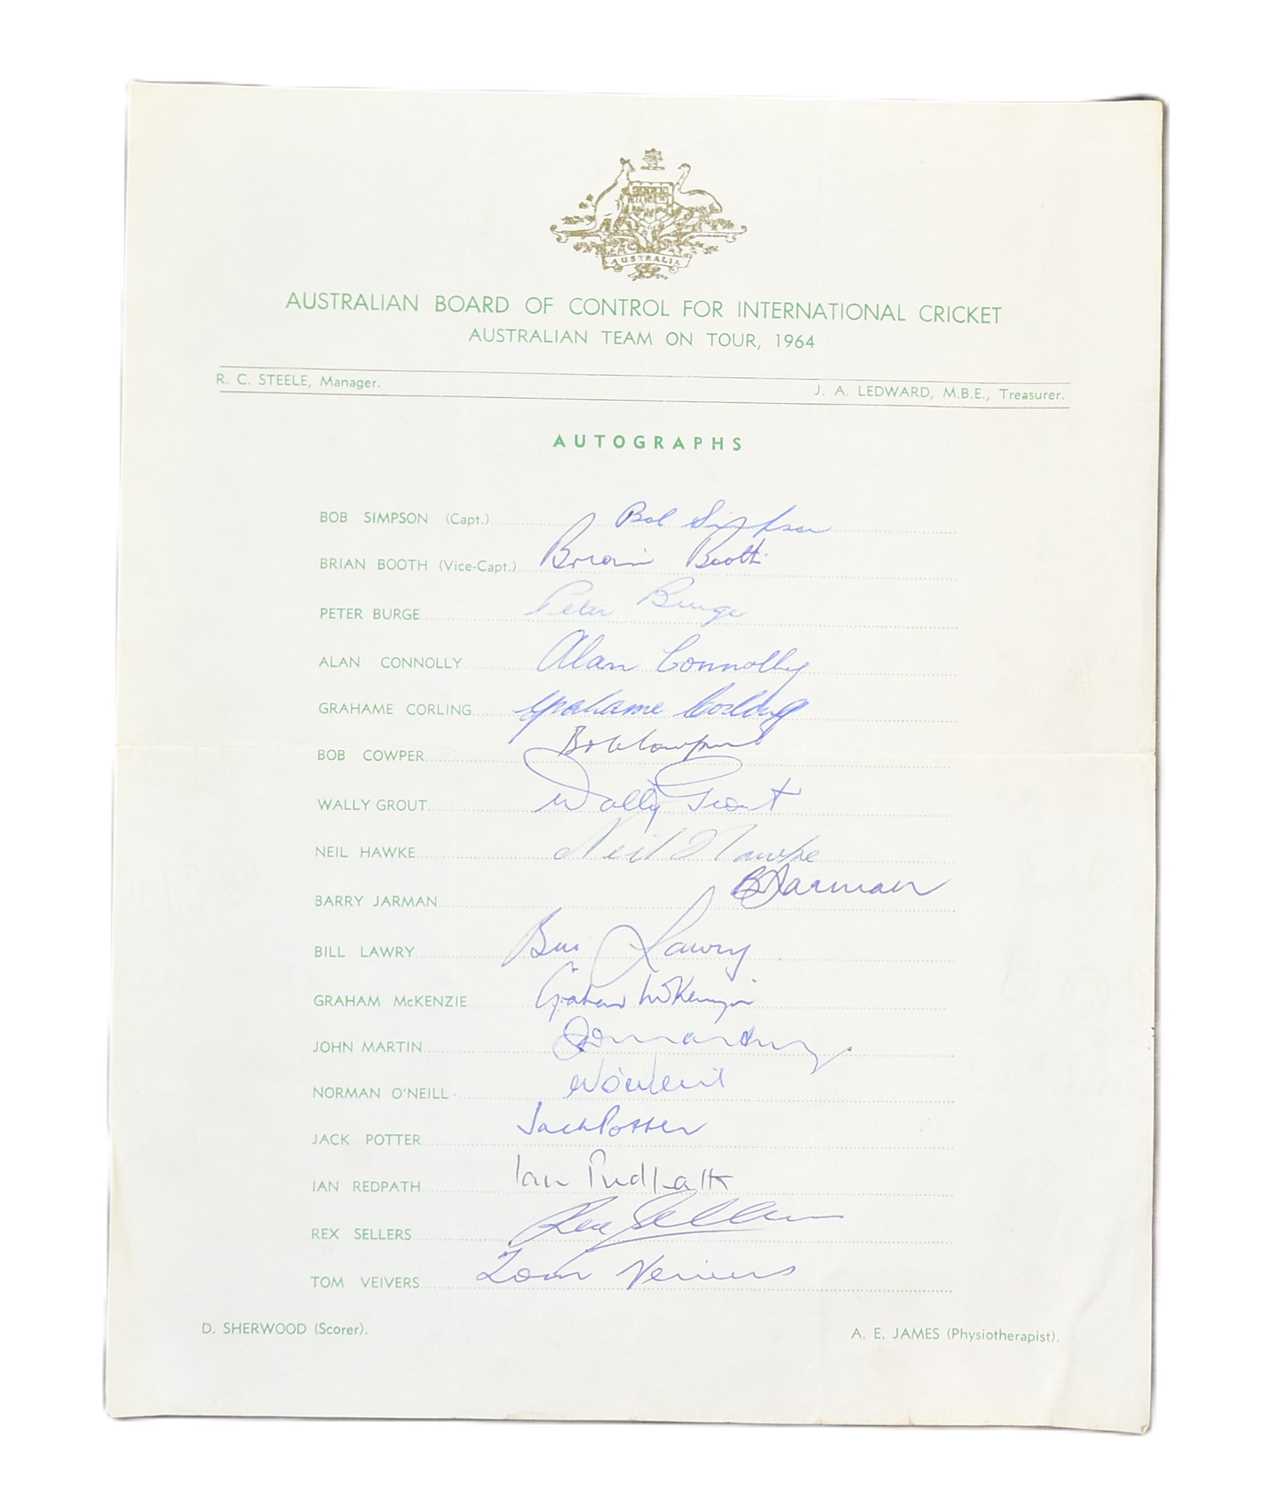 AUSTRALIA
AUSTRALIAN BOARD OF CONTROL FOR INTERNATIONAL CRICKET
AUSTRALIAN TEAM ON TOUR, 1964
R. C. STEELE, Manager. J. A. LEDWARD, M.B.E., Treasurer.
AUTOGRAPHS
BOB SIMPSON (Capt.) Bob Simpson
BRIAN BOOTH (Vice-Capt.) Brian Booth
PETER BURGE Peter Burge
ALAN CONNOLLY Alan Connolly
GRAHAME CORLING Grahame Corling
BOB COWPER Bob Cowper
WALLY GROUT Wally Grout
NEIL HAWKE Neil Hawke
BARRY JARMAN B Jarman
BILL LAWRY Bill Lawry
GRAHAM McKENZIE Graham McKenzie
JOHN MARTIN
NORMAN O'NEILL N O'Neill
JACK POTTER Jack Potter
IAN REDPATH Ian Redpath
REX SELLERS Rex Sellers
TOM VEIVERS Tom Veivers
D. SHERWOOD (Scorer). A. E. JAMES (Physiotherapist).